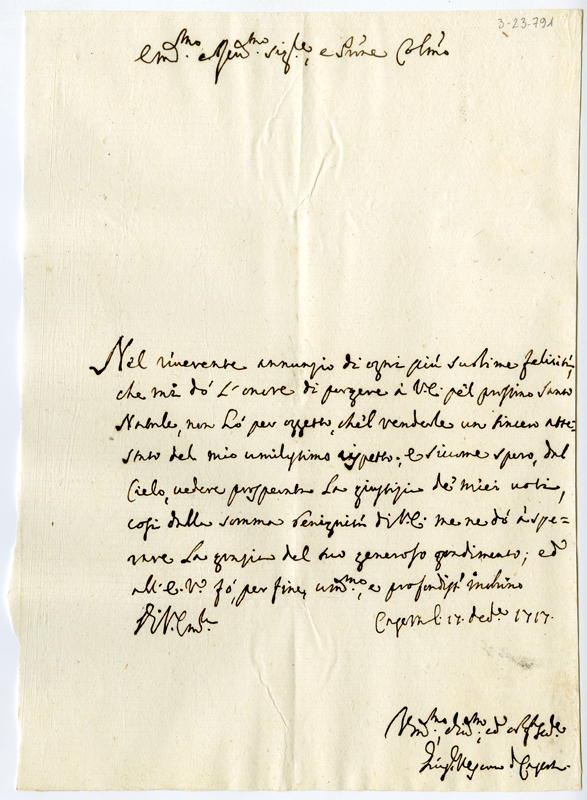 3-23-791
Em.mo e Rev.mo Sig.re, e P̄rone Col.mo
Nel riverente annunzio di ogni più sublime felicità,
che mi dò l'onore di porgere à V.E. pel prossimo Santo
Natale, non hò per oggetto, che'l renderle un sincero atte-
stato del mio umilissimo rispetto; e siccome spero, dal
Cielo, vedere prosperata la giustizia de' miei voti,
così dalla somma benignità di V.E. me ne dò à spe-
rare la grazia del suo generoso gradimento; ed
all' E.V. fò, per fine, um.mo, e profondiss.o inchino
Di V. Em.a Caserta li 17. dec.e 1717.
Um.mo, e ed Seg.re
Vescovo di Caserta